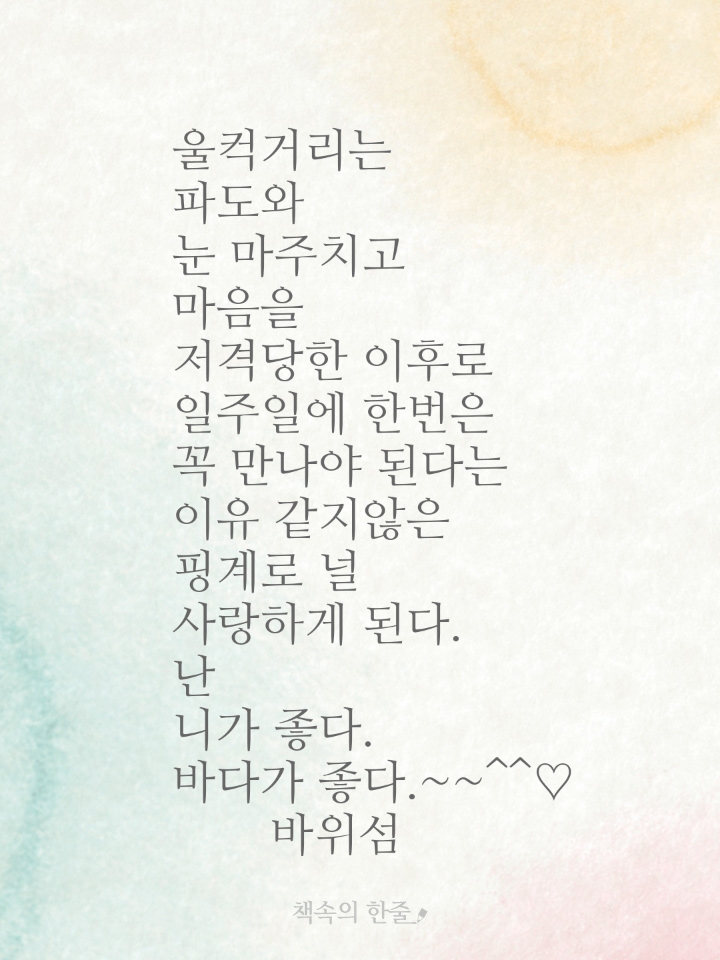 울컥거리는
파도와
눈 마주치고
마음을
저격당한 이후로
일주일에 한번은
꼭 만나야 된다는
이유 같지않은
핑계로 널
사랑하게 된다.
난
니가 좋다.
바다가 좋다.~~^^♡
바위섬
책속의 한줄